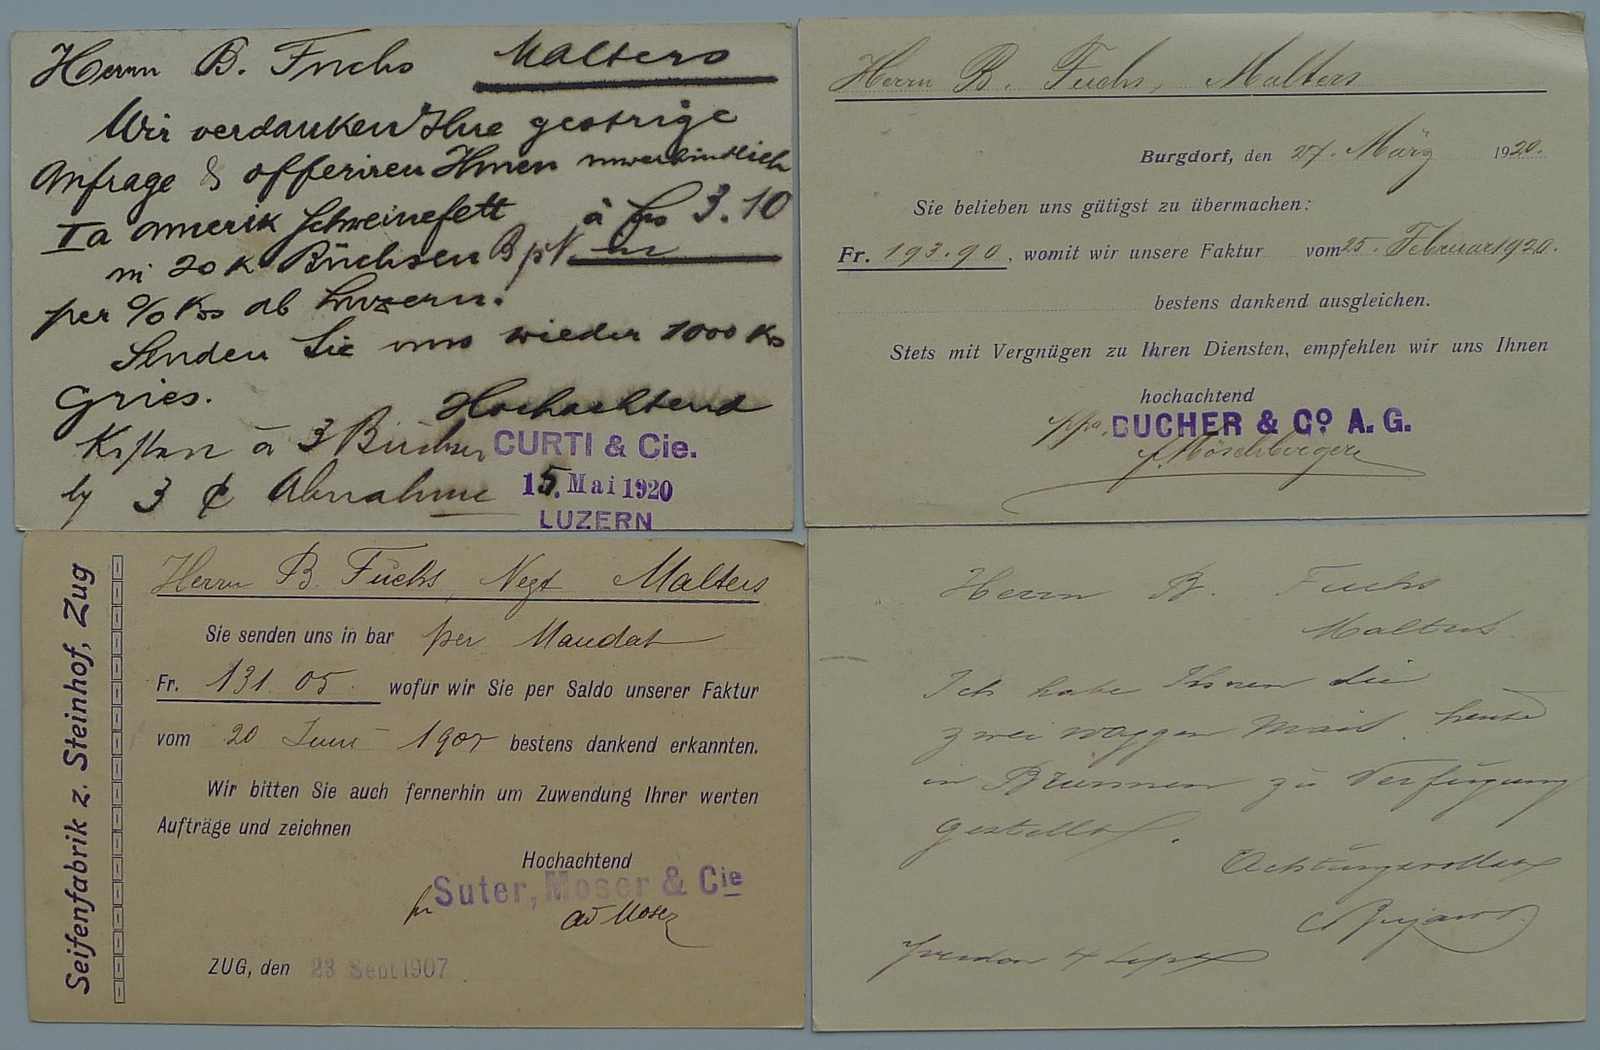 Herrn B. Fuchs Malters
Wir verdanken Ihre gestrige
Anfrage & offeriren Ihnen unverbindlich
Ia amerik Schweinefett à frs 3.10
in 20 K Büchsen
per % Kos ab Luzern.
Senden Sie uns wieder 1000 Ks
Gries.
Hochachtend
Kisten à 3 Büchsen
by 3 Abnahme
CURTI & Cie.
15. Mai 1920
LUZERN
Herrn B. Fuchs, Malters
Burgdorf, den 27. März 1920.
Sie belieben uns gütigst zu übermachen:
Fr. 193.90, womit wir unsere Faktur vom 25. Februar 1920.
bestens dankend ausgleichen.
Stets mit Vergnügen zu Ihren Diensten, empfehlen wir uns Ihnen
hochachtend
ppa. BUCHER & Co A. G.
Seifenfabrik z. Steinhof, Zug
Herrn B. Fuchs, Negt Malters
Sie senden uns in bar per Mandat
Fr. 131.05. wofür wir Sie per Saldo unserer Faktur
vom 20 Juni 1907 bestens dankend erkannten.
Wir bitten Sie auch fernerhin um Zuwendung Ihrer werten
Aufträge und zeichnen
Hochachtend
Suter, Moser & Cie
Moser
ZUG, den 23 Sept 1907
Herrn B. Fuchs
Malters.
Ich habe Ihnen die
zwei waggon Mais heute
in Brunnen zu Verfügung
gestellt.
Achtungsvollst
4 Sept